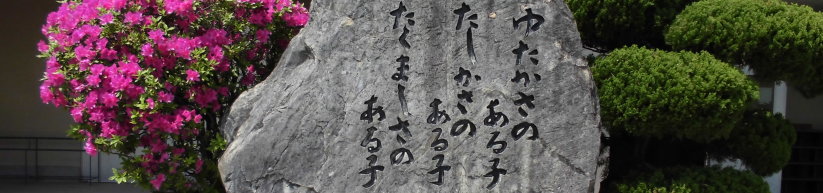 ゆたかさの
ある子
たしかさの
ある子
たくましさの
ある子